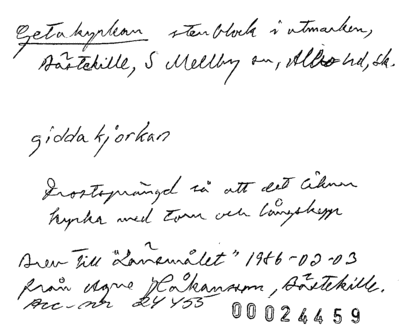 Getakyrkan stenblock i utmarken,
Båstekille, S Mellby sn, Albo hd, Sk.
giddakjorkan
Frostsprängd så att det liknar
kyrka med torn och långskepp
Brev till "Lansmålet" 1986-02-03
från Agne Håkansson, Båstekille.
Acc-nr 24455
00024459